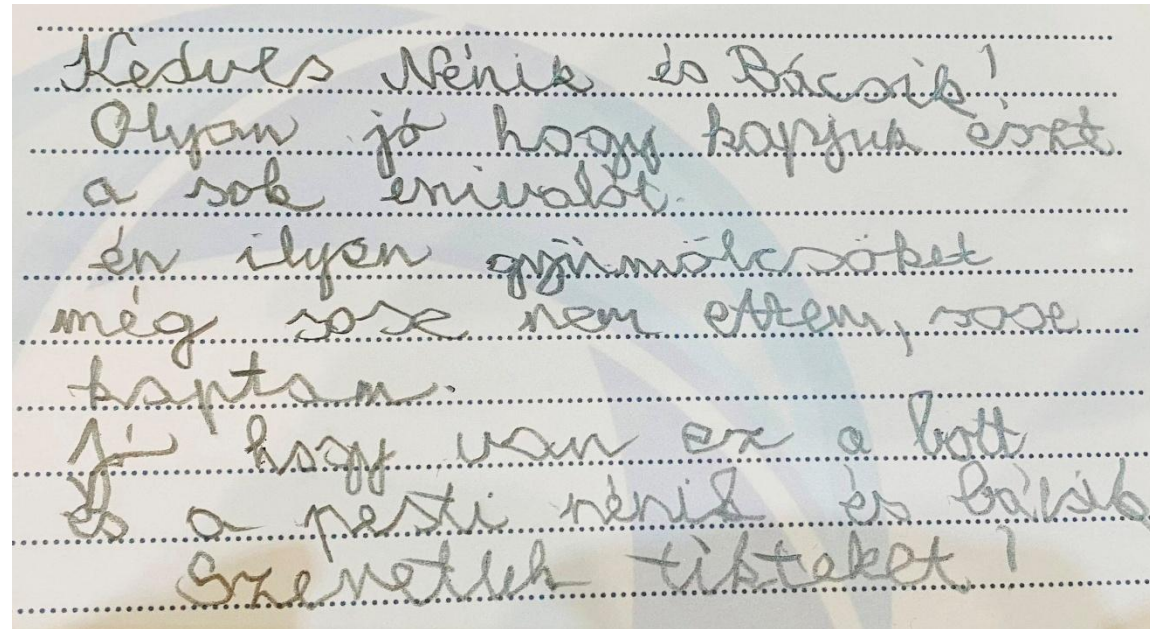 Kedves Nénik és Bácsik!
Olyan jó hogy kapjuk eszt
a sok enivalót.
én ilyen gyümölcsöket
még sose nem ettem, sose
kaptam.
Jó hogy van ez a bolt
És a pesti nénik és bácsik
Szeretlek tikteket!